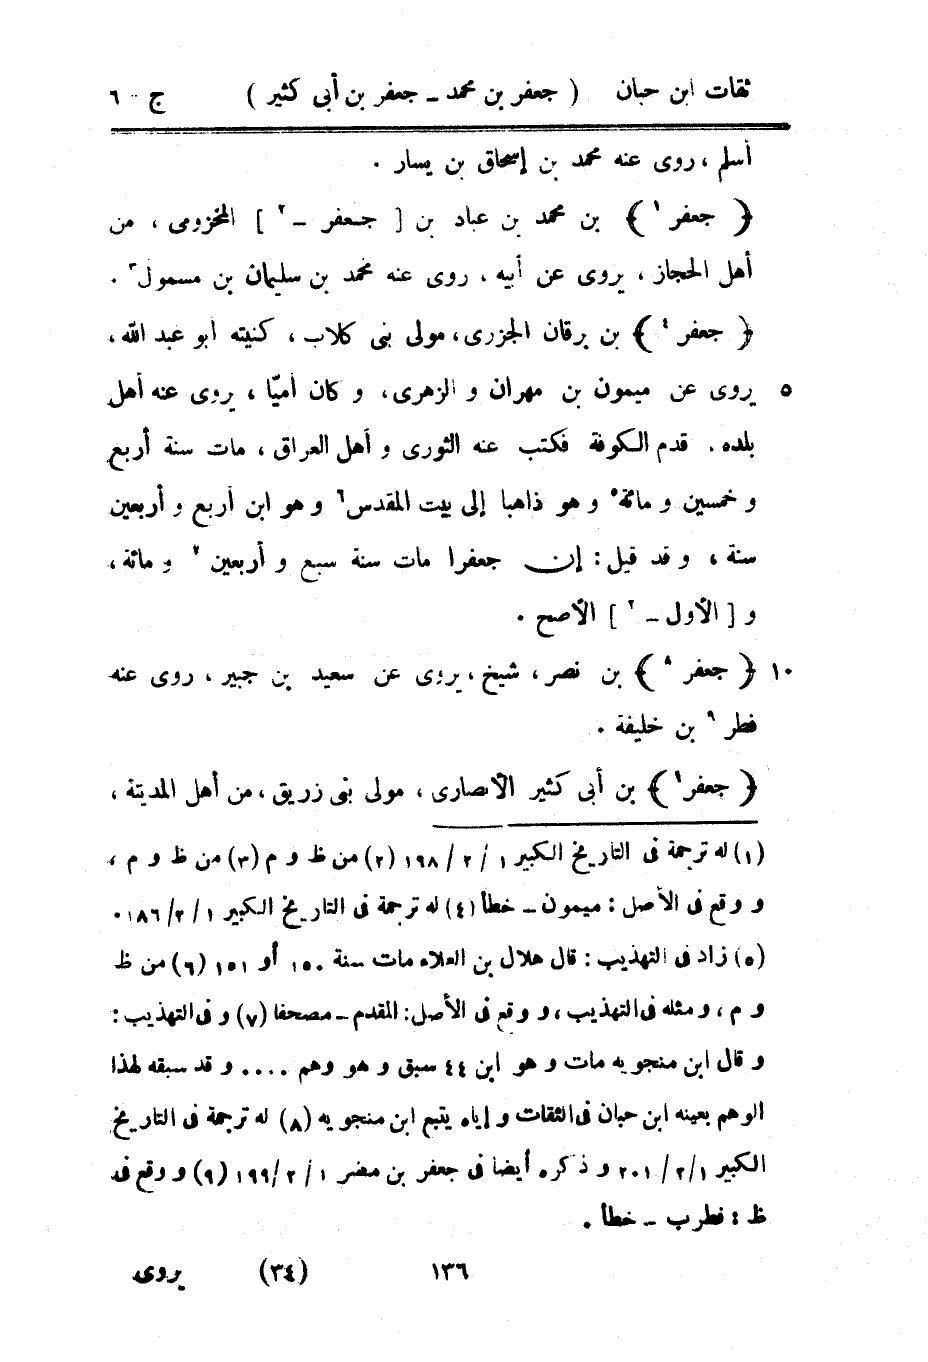 ثقات ابن حبان ( جعفر بن محمد ــ جعفر بن أبى كثير ) ج - ٦
أسلم ، روى عنه محمد بن إسحاق بن يسار .
﴿ جعفر ١ ﴾ بن محمد بن عباد بن [ جعفر ــ ٢ ] المخزومى ، من
أهل الحجاز ، يروى عن أبيه ، روى عنه محمد بن سليمان بن مسمول ٣ .
﴿ جعفر ٤ ﴾ بن برقان الجزرى، مولى بنى كلاب ، كنيته أبو عبد الله ،
٥ يروى عن ميمون بن مهران و الزهرى، و كان أميّا ، يروى عنه أهل
بلده . قدم الكوفة فكتب عنه الثورى و أهل العراق ، مات سنة أربع
و خمسين و مائة ٥ و هو ذاهبا إلى بيت المقدس ٦ و هو ابن أربع و أربعين
سنة ، و قد قيل : إن جعفرا مات سنة سبع و أربعين ٧ و مائة ،
و [ الأول ــ ٢ ] الأصح .
١٠ ﴿ جعفر ٨ ﴾ بن نصر ، شيخ ، يروى عن سعيد بن جبير ، روى عنه
فطر ٩ بن خليفة .
﴿ جعفر ١ ﴾ بن أبى كثير الأنصارى ، مولى بنى زريق ، من أهل المدينة ،
(١) له ترجمة فى التاريخ الكبير ١ / ٢ / ١٩٨ (٢) من ظ و م (٣) من ظ و م ،
و وقع فى الأصل : ميمون ــ خطأ (٤) له ترجمة فى التاريخ الكبير ١ / ٢ / ١٨٦ .
(٥) زاد فى التهذيب : قال هلال بن العلاء مات سنة ١٥٠ أو ١٥١ (٦) من ظ
و م ، و مثله فى التهذيب ، و وقع فى الأصل : المقدم ــ مصحفا (٧) و فى التهذيب :
و قال ابن منجويه مات و هو ابن ٤٤ سبق و هو وهم .... و قد سبقه لهذا
الوهم بعينه ابن حبان فى الثقات و إياه يتبع ابن منجويه (٨) له ترجمة فى التاريخ
الكبير ١ / ٢ / ٢٠١ و ذكره أيضا فى جعفر بن مضر ١ / ٢ / ١٩٩ (٩) و وقع فى
ظ : فطرب ــ خطأ .
١٣٦ (٣٤) يروى